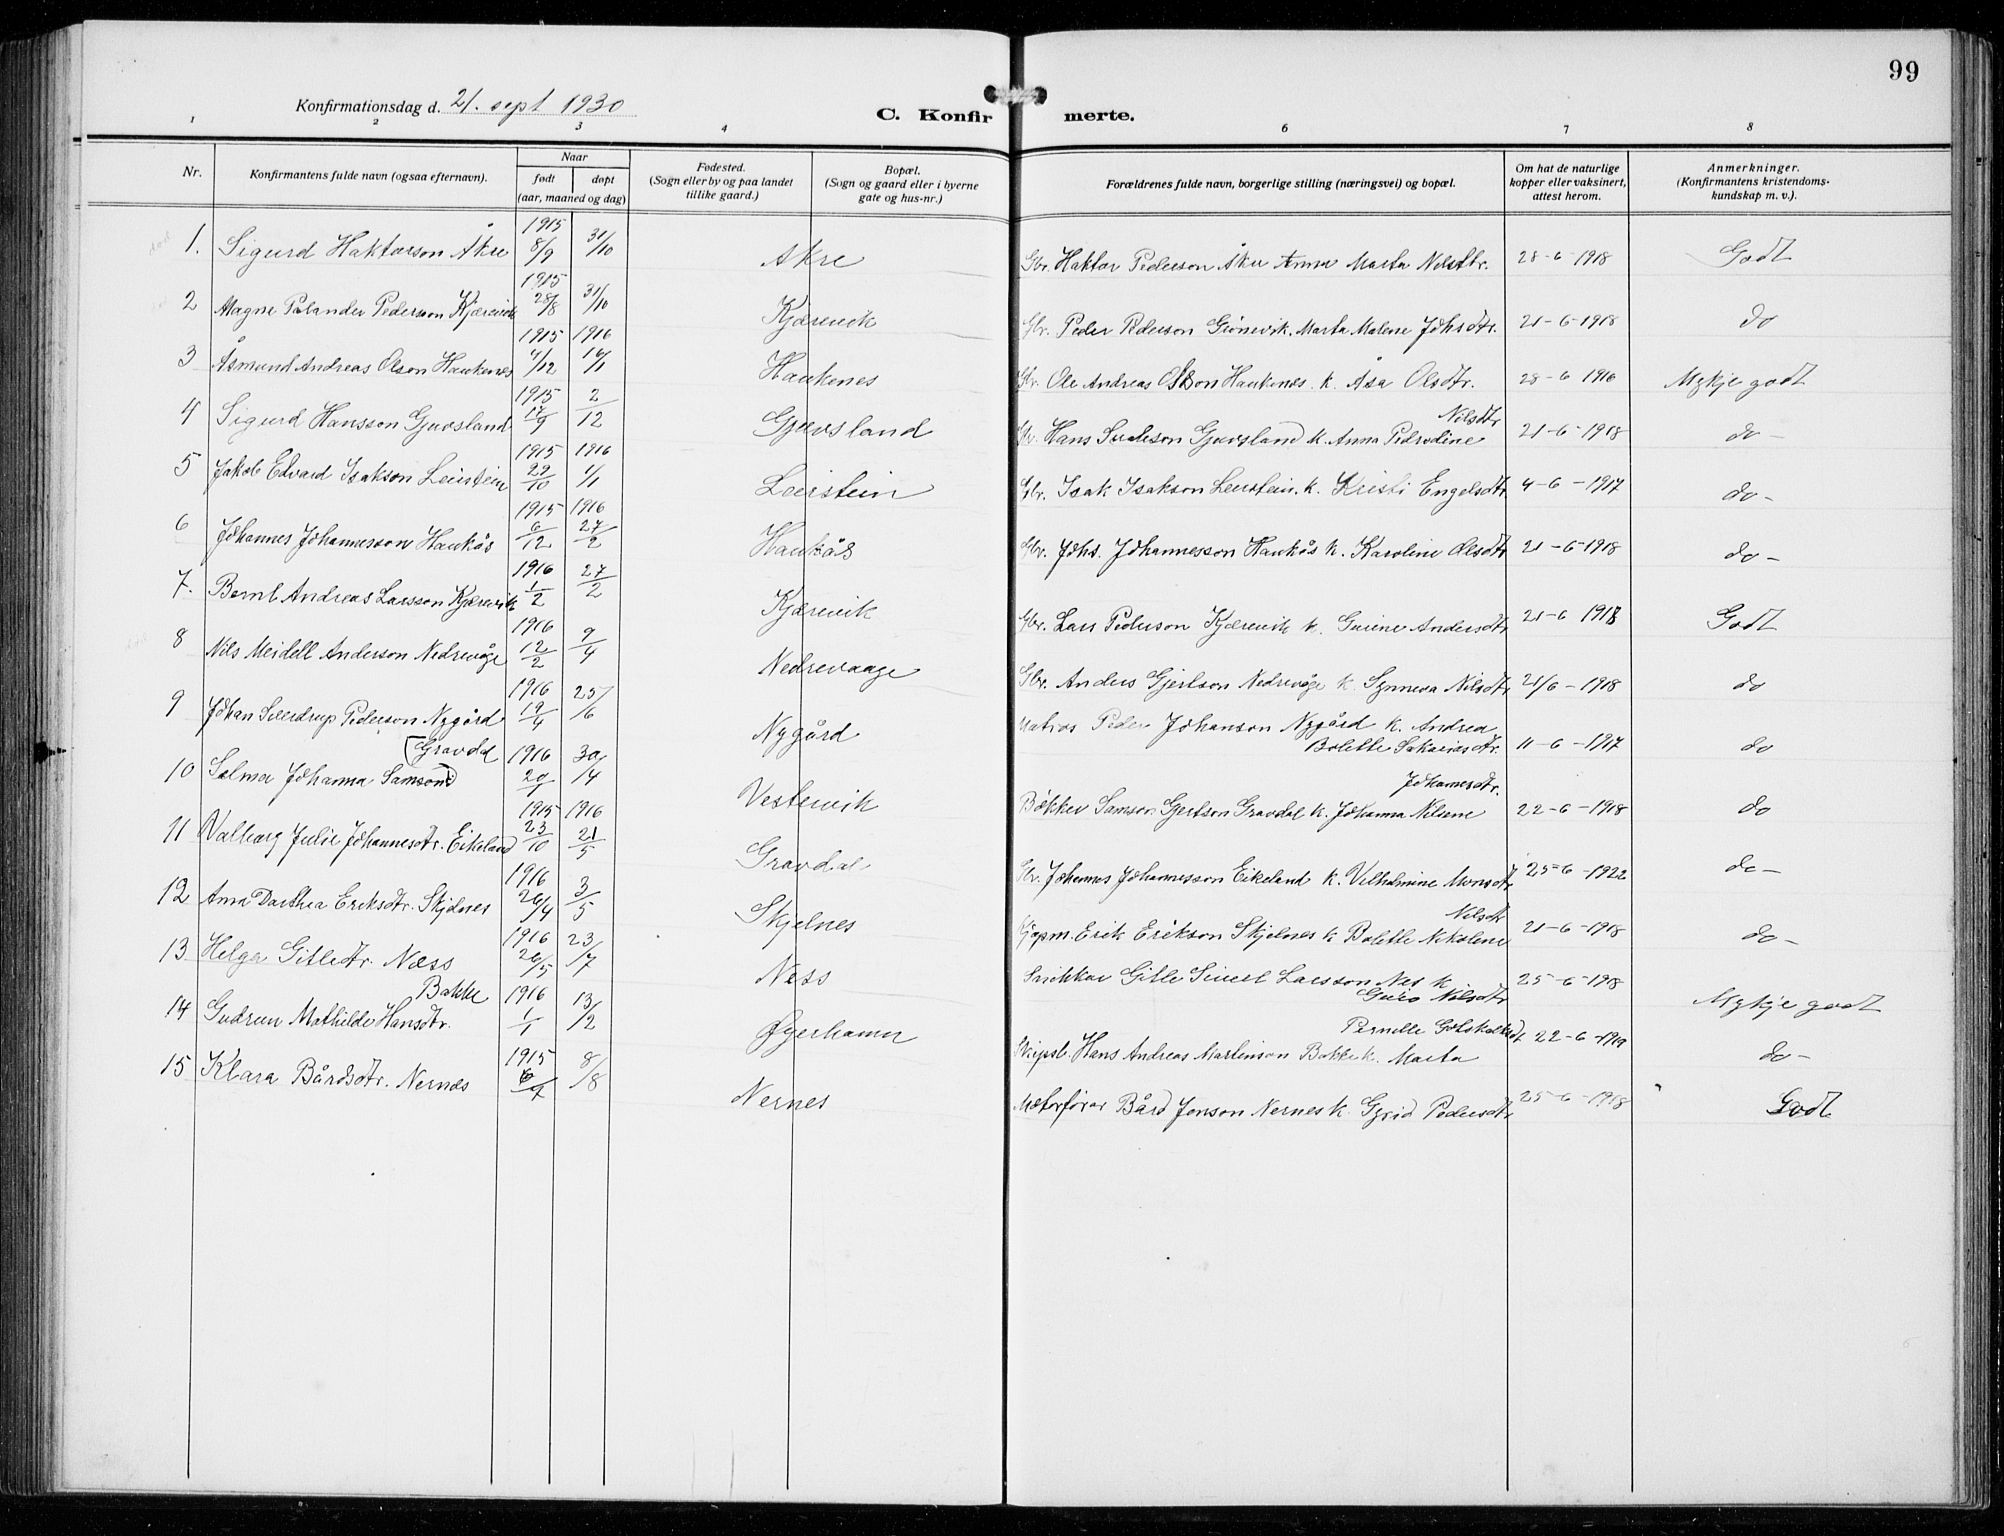 99
Konfirmationsdag d. 21. sept 1930
C. Konfir merte.
1 2 3 4 6 7 8
Nr. Konfirmantens fulde navn (ogsaa efternavn). Naar født døpt (aar, maaned og dag) Fødested. (Sogn eller by og paa landet tillike gaard.) Bopæl. (Sogn og gaard eller i byerne gate og hus-nr.) Forældrenes fulde navn, borgerlige stilling (næringsvei) og bopæl. Om hat de naturlige kopper eller vaksinert, attest herom. Anmerkninger. (Konfirmantens kristendoms-kundskap m. v.).
1. Sigurd Haktorson Åkre 1915 8/9 31/10 Akre Gbr. Haktor Pederson Åkre Anna Marta Nilsdtr. 28-6-1918 Godt
2 Magne Palander Pederson Kjærevik 1915 28/8 31/10 Kjærevik Gbr. Peder Pederson Marta Malene Johsdtr. 21-6-1918 do
3 Åsmund Andreas Olson Haukenes 1915 4/12 1916 16/1 Haukenes Gbr. Ole Andreas Olson Haukenes k. Åsa Olsdtr. 28-6-1916 Mykje godt
4 Sigurd Hansson Gjuvsland 1915 17/9 2/12 Gjuvsland Gbr. Hans Gjuvsland k. Anna Pedrodine Nilsdtr 21-6-1918 do-
5 Jakob Edvard Isakson Leirstein 1915 29/10 1916 1/1 Leirstein Gbr. Isak Isakson Leirstein k. Kristi Engelsdtr 4-6-1917 do-
6 Johannes Johannesson Haukås 1915 6/12 1916 27/2 Haukås Gbr. Johs. Johannesson Haukås k. Karoline Olsdtr 21-6-1918 do-
7. Bernt Andreas Larsson Kjærevik 1916 1/2 27/2 Kjærevik Gbr. Lars Pederson Kjærevik k. Gurine Andersdtr 21-6 1918 Godt
8 Nils Meidell Anderson Nedrevåge 1916 12/2 9/4 Nedrevaage Gbr. Anders Gjertson Nedrevåge k. Synneva Nilsdtr 21/6-1918 do
9 Johan Sverdrup Pederson Nygård 1916 19/4 25/6 Nygård Matros Peder Johanson Nygård k. Andrea Bolette Sakariasdtr. 11-6-1917 do
10 Selma Johanna Samsond (Gravdal 1916 20/1 30/4 Vestervik Bøkker Samson Gjertson Gravdal k. Johanna Nilsine Johannesdtr. 22-6-1918 do
11 Valborg Julie Johannesdtr. Eikeland 1915 23/10 1916 21/5 Gravdal Gbr. Johannes Johannesson Eikeland k. Vilhelmine Monsdtr 25-6-1922 do-
12 Anna Dorthea Eriksdtr. Skjelnes 1916 26/4 3/5 Skjelnes Erik Erikson Skjelnes k Bolette Nikoline Nilsdtr 21-6-1918 do-
13 Helga Gitledtr. Næss 1916 26/5 23/7 Ness Gitle Larsson Nes k Guro Nilsdtr 25-6-1918 Mykje godt
14 Gudrun Mathilde Hansdtr. Bakke 1916 1/1 13/2 Øyerhamn Skipsb. Hans Andreas Martinson Bakke k. Marta Pernille Gotskalksdt 22-6-1919 do-
15 Klara Bårdsdtr. Nernes 1915 6/7 8/8 Nernes Motorfører Bård Jonson Nernes k. Gyrid Pedersdtr 25-6-1918 Godt